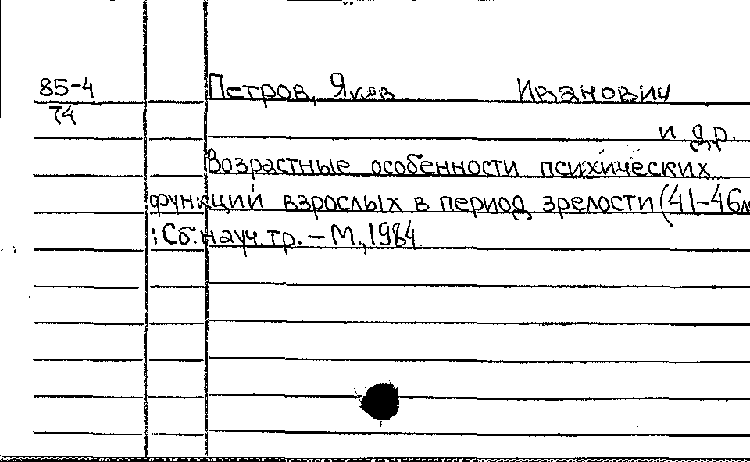 85-4 Петров, Яков Иванович
74
и др.
Возрастные особенности психических
функций взрослых в период зрелости (41-46л
: Сб. науч. тр. - М., 1984